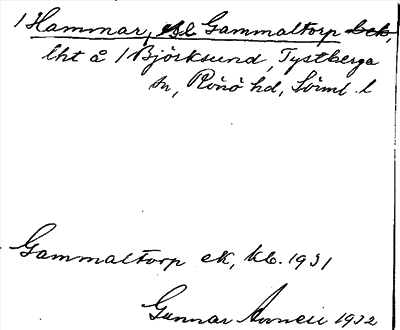 / Hammar, Gammaltorp
lht å / Björksund, Tystberga
sn, Rönö hd, Sörml. l
Gammaltorp ek, kb. 1931
Gunnar 1932